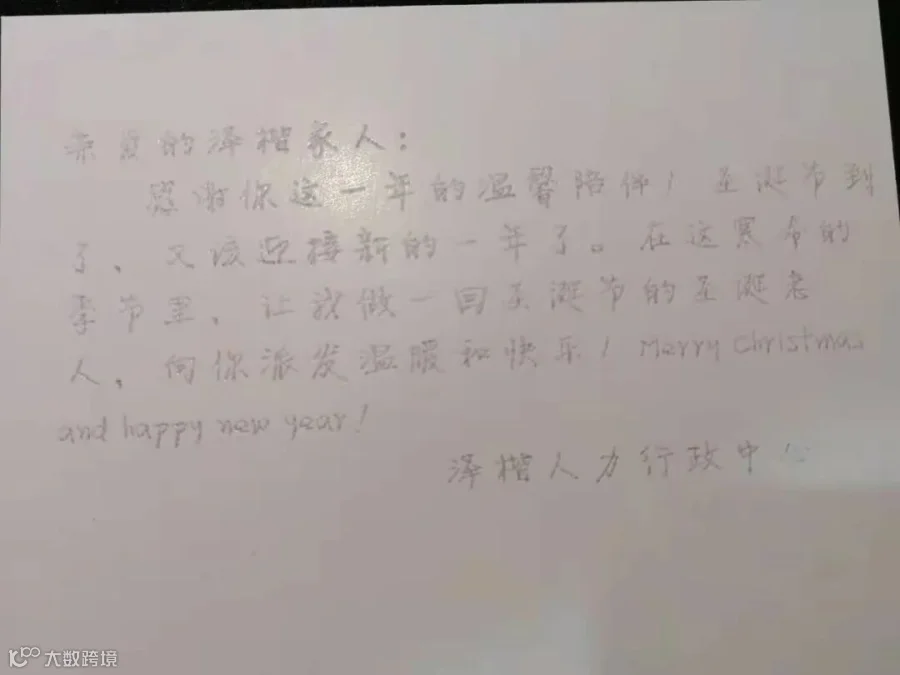 亲爱的泽楷家人：
感谢你这一年的温馨陪伴！圣诞节到
了、又该迎接新的一年了。在这寒冷的
季节里、让我做一回圣诞节的圣诞老
人，向你派发温暖和快乐！Merry Christmas
and happy new year！
泽楷人力行政中心
大数跨境